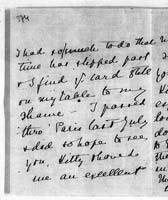 I had so much to do that
time has slipped past
& I find yr card still
on my table to my
shame – I passed
thro' Paris last July
& did so hope to see
you. Hetty showed
me an excellent